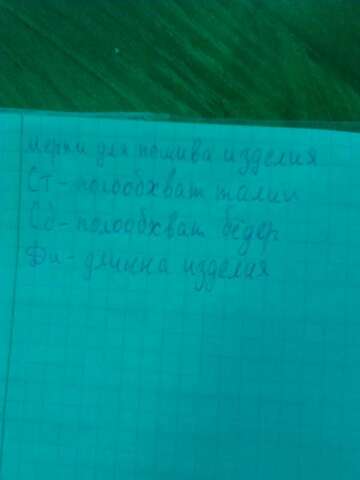 мерки для пошива изделия
Ст - полообхват талии
Сб - полообхват бедер
Ди - длинна изделия